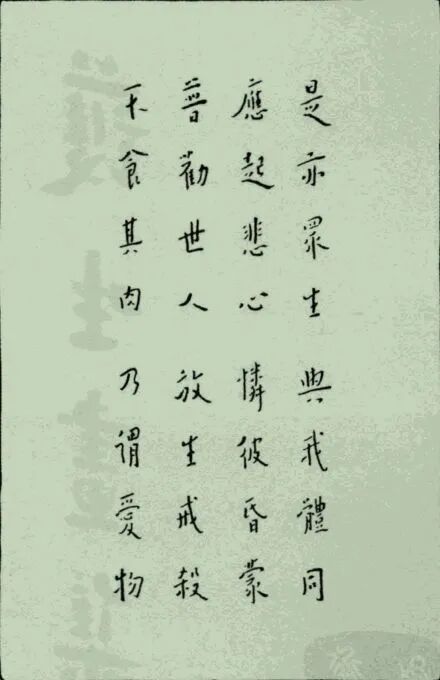 是亦眾生 與我體同
應起悲心 憐彼昏蒙
普勸世人 放生戒殺
不食其肉 乃謂愛物
護生畫集